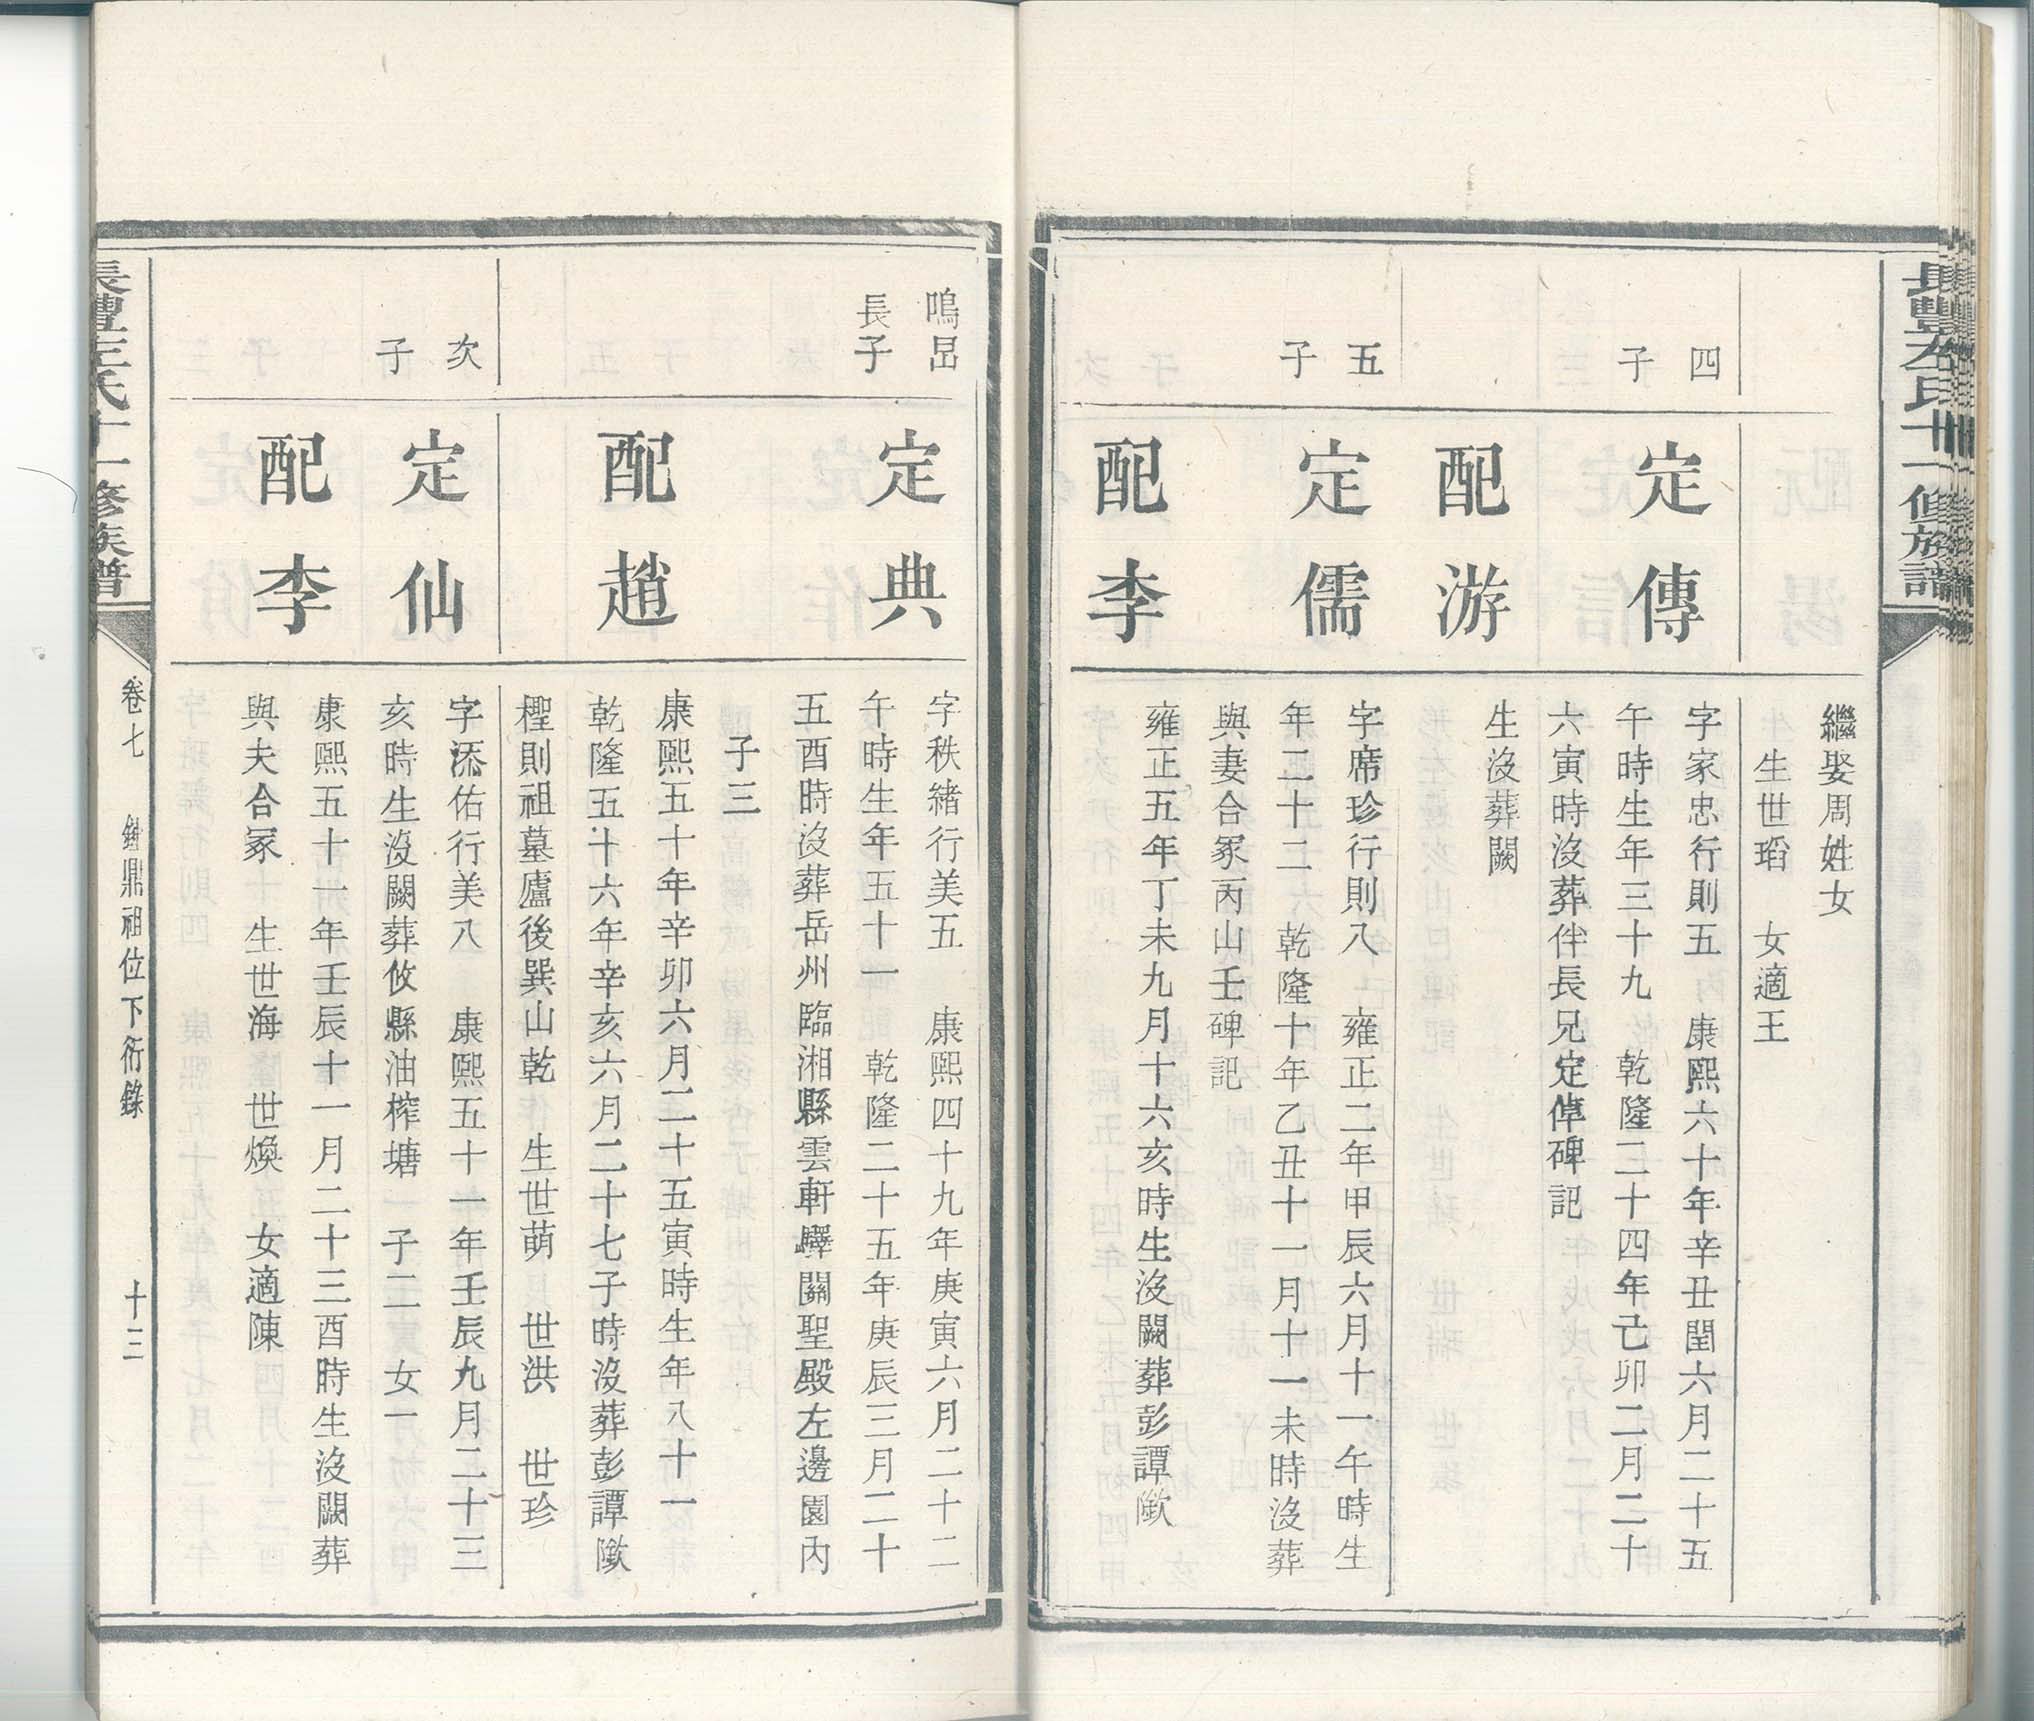 長豐左氏十一修族譜
繼娶周姓女
生世瑫　女適王
四
子
定傳
字家忠行則五　康熙六十年辛丑閏六月二十五
午時生年三十九　乾隆二十四年己卯二月二十
六寅時沒葬伴長兄定倬碑記
配游
生沒葬闕
五
子
定儒
字席珍行則八　雍正二年甲辰六月十一午時生
年二十二　乾隆十年乙丑十一月十一未時沒葬
與妻合冢丙山壬碑記
配李
雍正五年丁未九月十六亥時生沒闕葬彭譚㙍
鳴岊
長子
定典
字秩緒行美五　康熙四十九年庚寅六月二十二
午時生年五十一　乾隆二十五年庚辰三月二十
五酉時沒葬岳州臨湘縣雲軒嶧關聖殿左邊園內
子三
配趙
康熙五十年辛卯六月二十五寅時生年八十一
乾隆五十六年辛亥六月二十七子時沒葬彭譚㙍
檉則祖墓廬後巽山乾　生世萌　世洪　世珍
次
子
定仙
字添佑行美八　康熙五十一年壬辰九月二十三
亥時生沒闕葬攸縣油榨塘　子二　女一
配李
康熙五十一年壬辰十一月二十三酉時生沒闕葬
與夫合冢　生世海　世煥　女適陳
長豐左氏十一修族譜
卷七　鐘鼎祖位下衍錄　十三